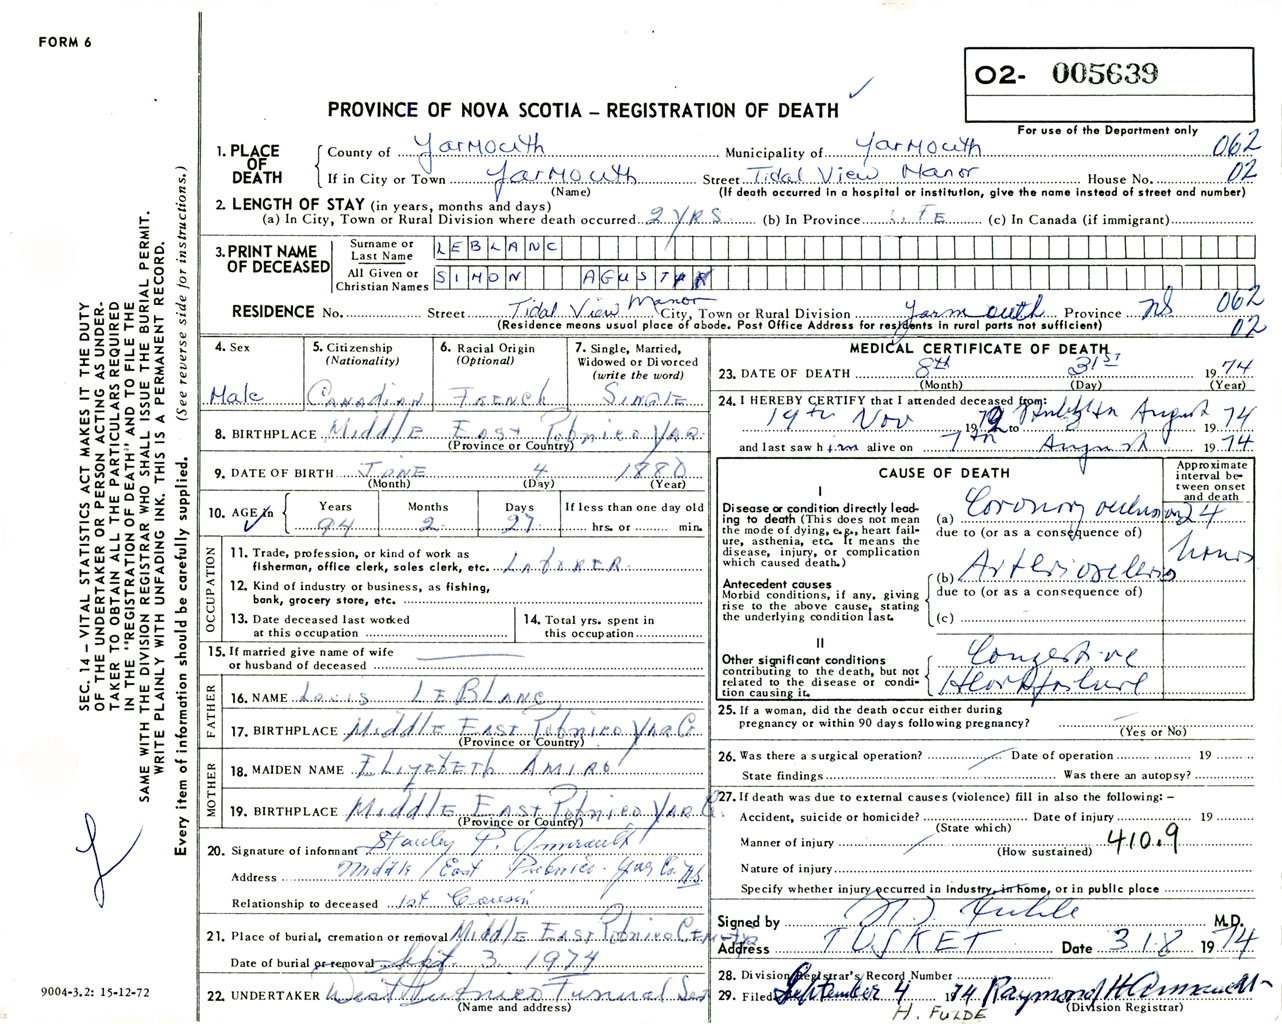 FORM 6
O2- 005639
PROVINCE OF NOVA SCOTIA – REGISTRATION OF DEATH
For use of the Department only
1. PLACE OF DEATH
County of Yarmouth Municipality of Yarmouth 062
If in City or Town Yarmouth Street Tidal View Manor House No. 02
(Name) (If death occurred in a hospital or institution, give the name instead of street and number)
2. LENGTH OF STAY (in years, months and days)
(a) In City, Town or Rural Division where death occurred 2 YRS (b) In Province LIFE (c) In Canada (if immigrant)
3. PRINT NAME OF DECEASED
Surname or Last Name LEBLANC
All Given or Christian Names SIMON AGUST
RESIDENCE No. Street Tidal View Manor City, Town or Rural Division Yarmouth Province NS 062
(Residence means usual place of abode. Post Office Address for residents in rural parts not sufficient) 02
4. Sex
Male
5. Citizenship
(Nationality)
Canadian
6. Racial Origin
(Optional)
French
7. Single, Married,
Widowed or Divorced
(write the word)
SINGLE
8. BIRTHPLACE Middle East Pubnico Yar
(Province or Country)
9. DATE OF BIRTH June 4 1880
(Month) (Day) (Year)
10. AGE in
Years Months Days If less than one day old
94 2 27 hrs. or min.
OCCUPATION
11. Trade, profession, or kind of work as
fisherman, office clerk, sales clerk, etc. LABORER
12. Kind of industry or business, as fishing,
bank, grocery store, etc.
13. Date deceased last worked
at this occupation
14. Total yrs. spent in
this occupation
15. If married give name of wife
or husband of deceased
FATHER
16. NAME Louis LeBlanc
17. BIRTHPLACE Middle East Pubnico Yar Co
(Province or Country)
MOTHER
18. MAIDEN NAME Elizebeth Amiro
19. BIRTHPLACE Middle East Pubnico Yar Co.
(Province or Country)
20. Signature of informant Stanley P. Amirault
Address Middle East Pubnico Yar Co. NS
Relationship to deceased 1st Cousin
21. Place of burial, cremation or removal Middle East Pubnico
Date of burial or removal Sept. 3 1974
22. UNDERTAKER West Pubnico Funeral Ser
(Name and address)
MEDICAL CERTIFICATE OF DEATH
23. DATE OF DEATH 8th 31st 19 74
(Month) (Day) (Year)
24. I HEREBY CERTIFY that I attended deceased from:
19th Nov 19 72 to August 19 74
and last saw him alive on 7th August 19 74
CAUSE OF DEATH
Approximate
interval be-
tween onset
and death
I
Disease or condition directly lead-
ing to death (This does not mean
the mode of dying, e.g., heart fail-
ure, asthenia, etc. It means the
disease, injury, or complication
which caused death.)
(a) Coronary occlusion 24 hours
due to (or as a consequence of)
Antecedent causes
Morbid conditions, if any, giving
rise to the above cause, stating
the underlying condition last.
(b) Arteriosclerosis
due to (or as a consequence of)
(c)
II
Other significant conditions
contributing to the death, but not
related to the disease or condi-
tion causing it.
Congestive
Heart failure
25. If a woman, did the death occur either during
pregnancy or within 90 days following pregnancy?
(Yes or No)
26. Was there a surgical operation? Date of operation 19
State findings Was there an autopsy?
27. If death was due to external causes (violence) fill in also the following: –
Accident, suicide or homicide? Date of injury 19
(State which)
Manner of injury 410.9
(How sustained)
Nature of injury
Specify whether injury occurred in Industry, in home, or in public place
Signed by H. Fulde M.D.
Address TUSKET Date 31 8 19 74
28. Division Registrar's Record Number
29. Filed September 4 1974 Raymond H Amirault
(Division Registrar)
H. FULDE
SEC. 14 – VITAL STATISTICS ACT MAKES IT THE DUTY
OF THE UNDERTAKER OR PERSON ACTING AS UNDER-
TAKER TO OBTAIN ALL THE PARTICULARS REQUIRED
IN THE "REGISTRATION OF DEATH" AND TO FILE THE
SAME WITH THE DIVISION REGISTRAR WHO SHALL ISSUE THE BURIAL PERMIT.
WRITE PLAINLY WITH UNFADING INK. THIS IS A PERMANENT RECORD.
Every item of information should be carefully supplied. (See reverse side for instructions.)
9004-3.2: 15-12-72